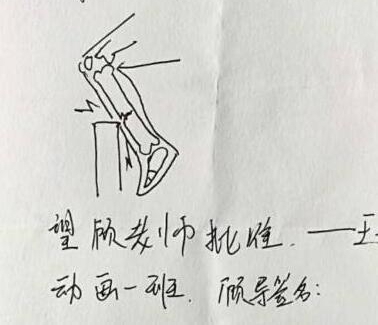 望顾老师批准. ——王
动画一班. 顾导签名: